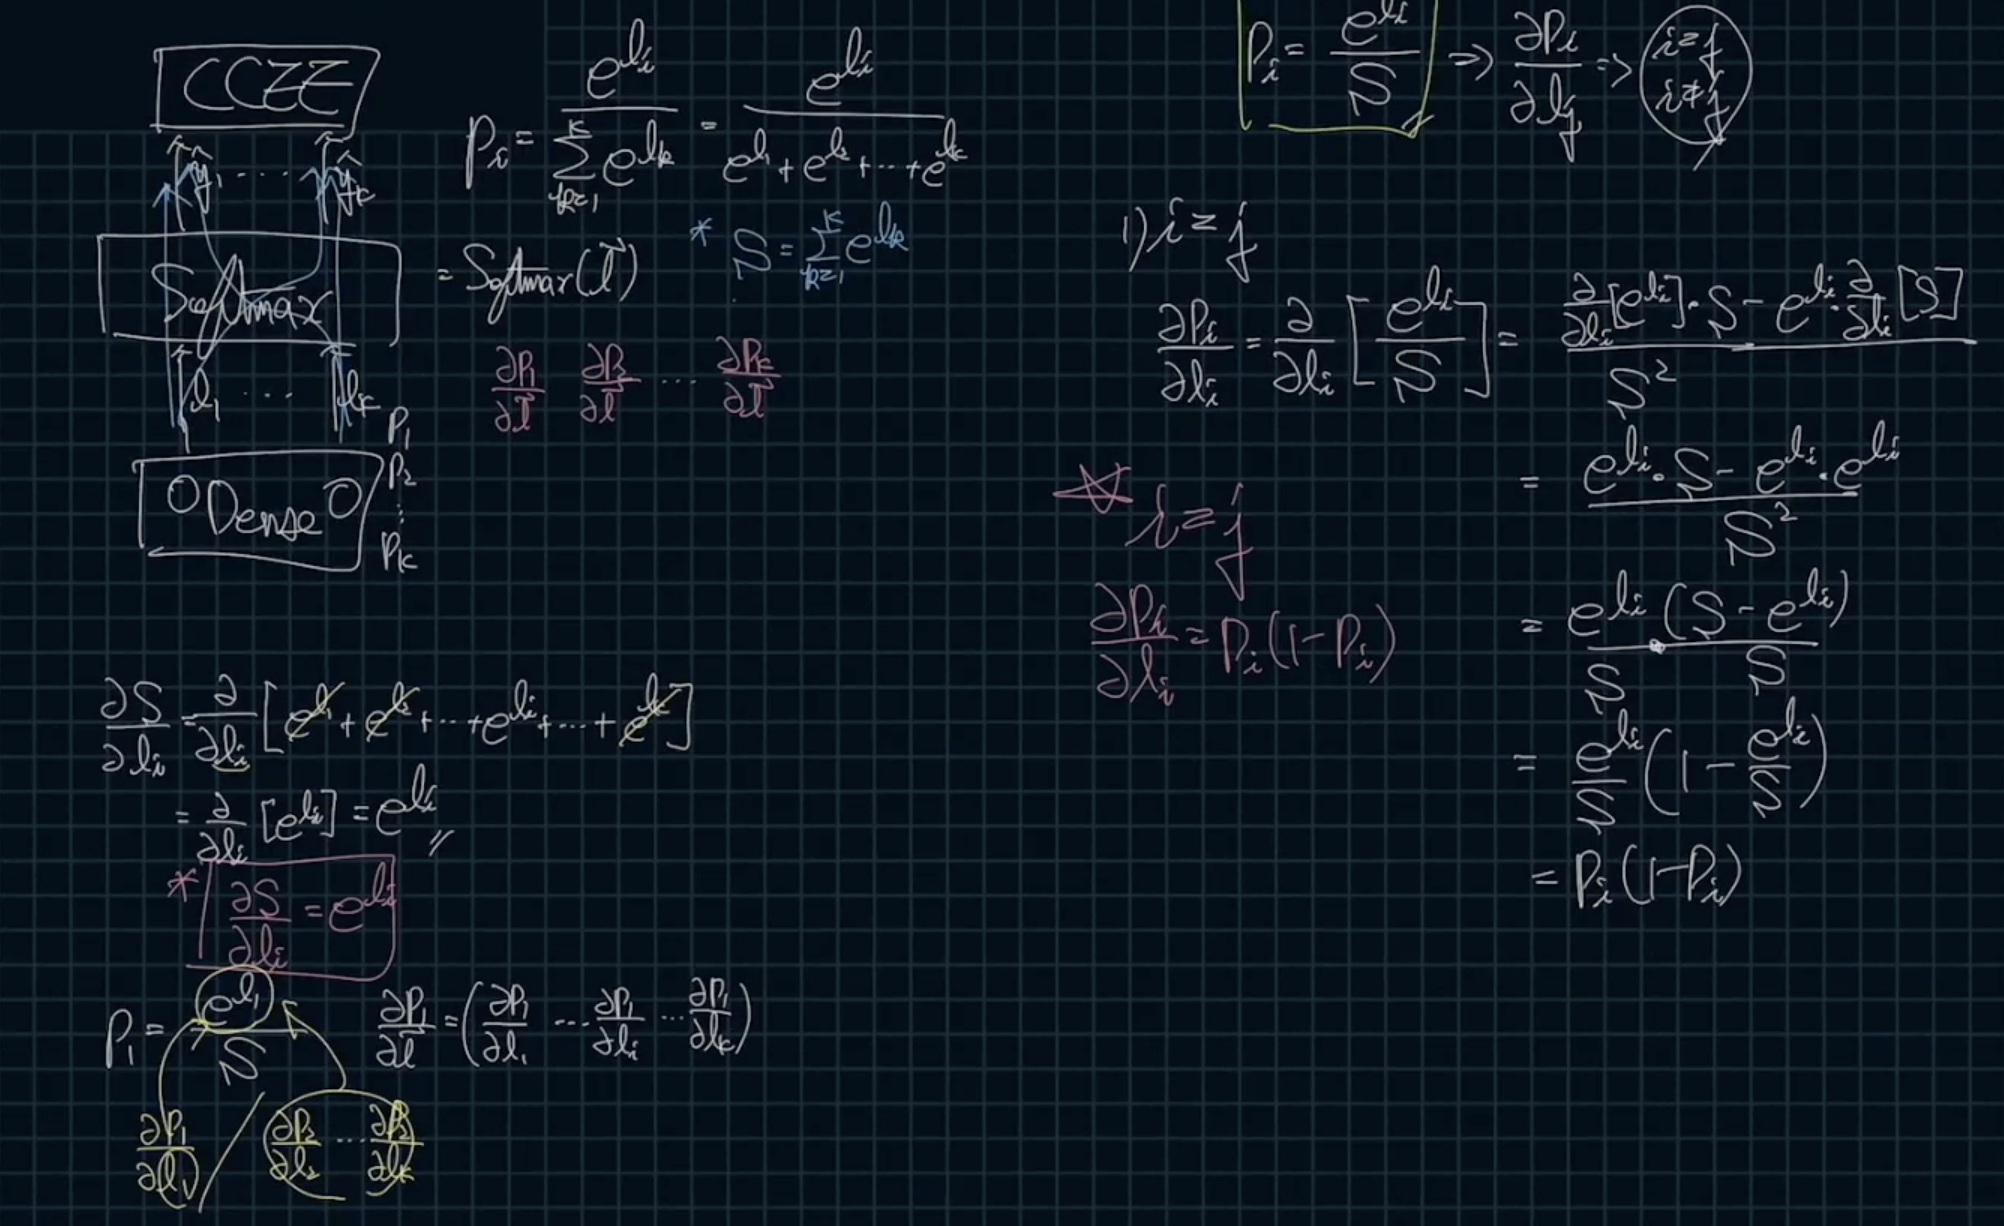 CCEE
ŷ₁ ... ŷₖ
Softmax
l₁ ... lₖ
Dense
P₁
P₂
⋮
Pₖ
Pᵢ = e^{lᵢ} / Σ_{k=1}^{K} e^{lₖ} = e^{lᵢ} / (e^{l₁} + e^{l₂} + ... + e^{lₖ})
= Softmax(l⃗)
* S = Σ_{k=1}^{K} e^{lₖ}
∂P₁/∂l⃗ ∂P₂/∂l⃗ ... ∂Pₖ/∂l⃗
∂S/∂lᵢ = ∂/∂lᵢ [e^{l₁} + e^{l₂} + ... + e^{lᵢ} + ... + e^{lₖ}]
= ∂/∂lᵢ [e^{lᵢ}] = e^{lᵢ} //
* ∂S/∂lᵢ = e^{lᵢ}
P₁ = e^{l₁} / S
∂P₁/∂l⃗ = (∂P₁/∂l₁ ... ∂P₁/∂lᵢ ... ∂P₁/∂lₖ)
∂P₁/∂l₁ / ∂P₂/∂l₂ ... ∂P₂/∂lₖ
Pᵢ = e^{lᵢ} / S ⇒ ∂Pᵢ/∂lⱼ ⇒ i=j
i≠j
1) i = j
∂Pᵢ/∂lᵢ = ∂/∂lᵢ [e^{lᵢ} / S] = (∂/∂lᵢ [e^{lᵢ}] · S - e^{lᵢ} · ∂/∂lᵢ [S]) / S²
= (e^{lᵢ} · S - e^{lᵢ} · e^{lᵢ}) / S²
= e^{lᵢ} (S - e^{lᵢ}) / S S
= e^{lᵢ}/S (1 - e^{lᵢ}/S)
= Pᵢ(1-Pᵢ)
☆ i = j
∂Pᵢ/∂lᵢ = Pᵢ(1-Pᵢ)